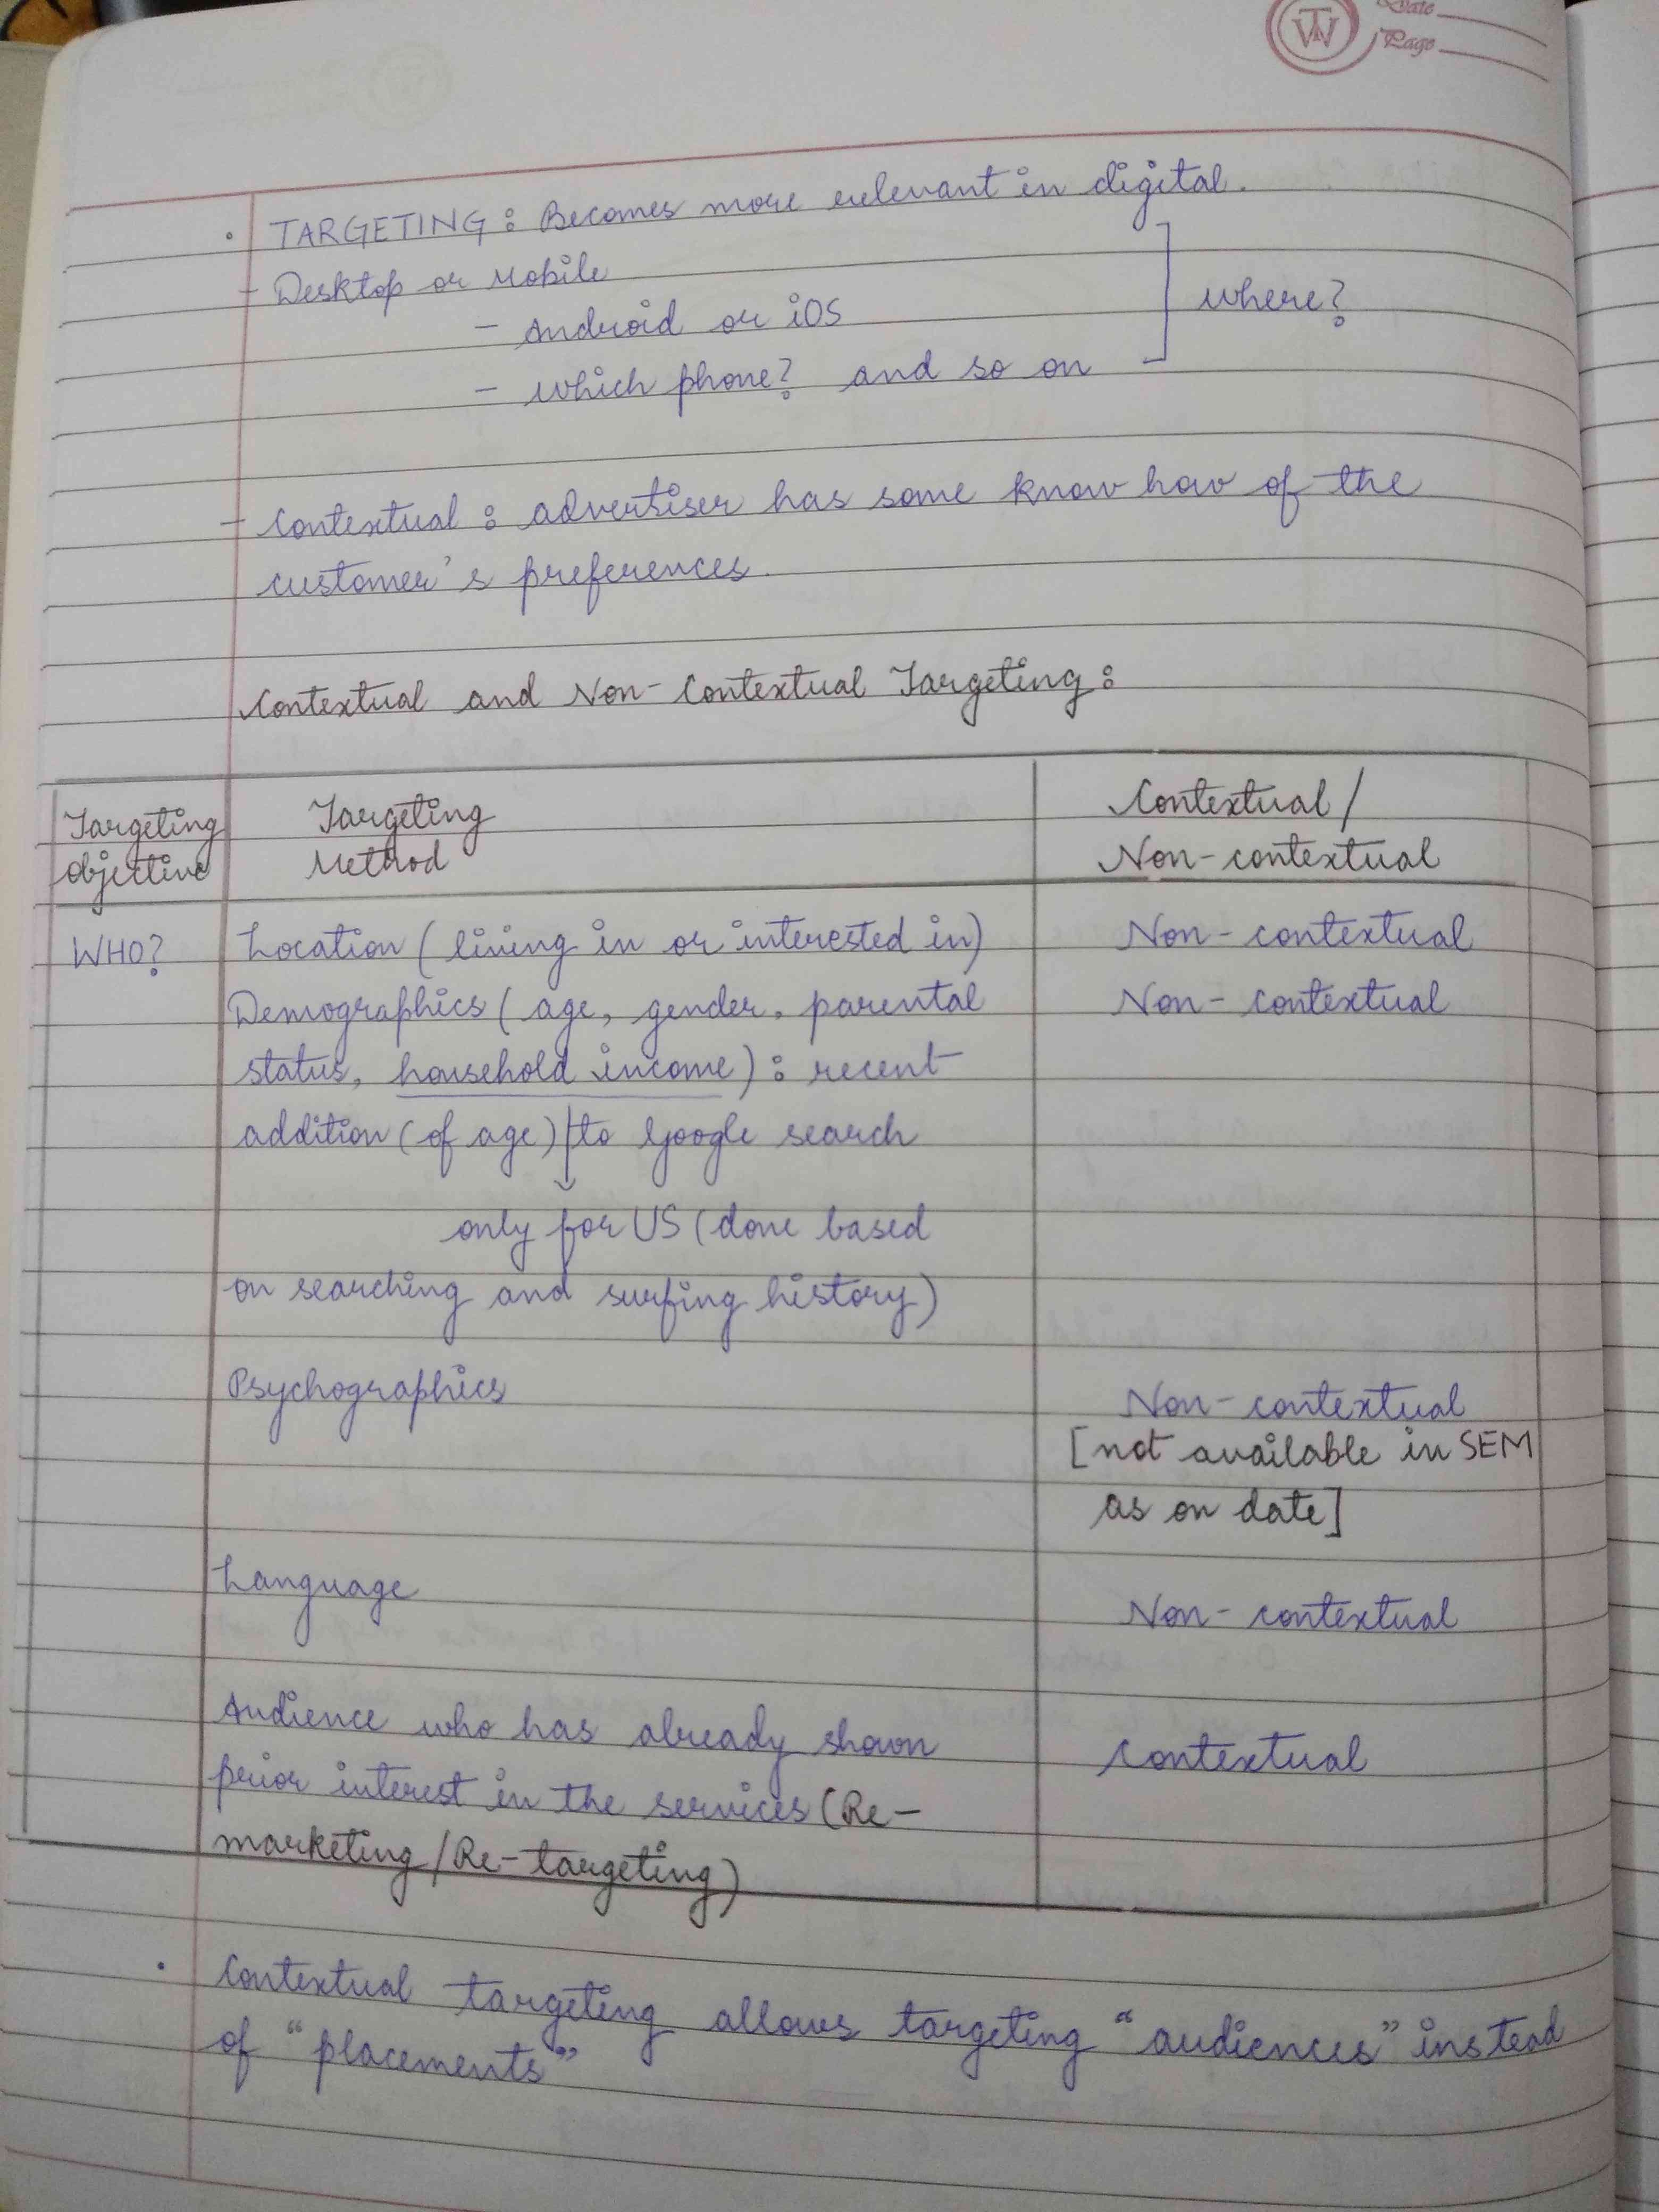 Date
Page
• TARGETING : Becomes more relevant in digital.
- Desktop or Mobile
- Android or iOS
where?
- which phone? and so on
- Contextual : advertiser has some know how of the
customer's preferences.
Contextual and Non-Contextual Targeting :
Targeting Objective | Targeting Method | Contextual / Non-contextual
WHO? | Location (living in or interested in) | Non-contextual
Demographics (age, gender, parental | Non-contextual
status, household income) : recent
addition (of age) to Google search
↓
only for US (done based
on searching and surfing history)
Psychographics | Non-contextual
[not available in SEM
as on date]
Language | Non-contextual
Audience who has already shown | Contextual
prior interest in the services (Re-
marketing/Re-targeting)
• Contextual targeting allows targeting "audiences" instead
of "placements"